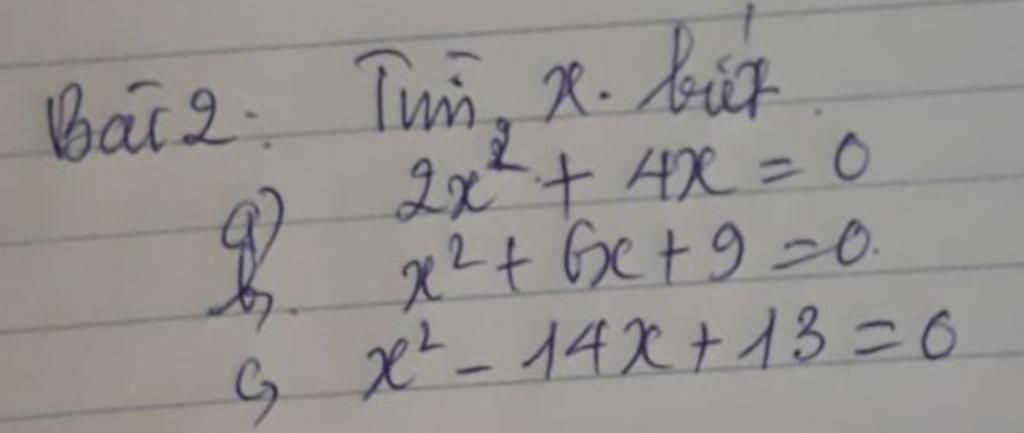 Bài 2: Tìm x. biết.
a) 2x² + 4x = 0
b, x² + 6x + 9 = 0.
c, x² - 14x + 13 = 0